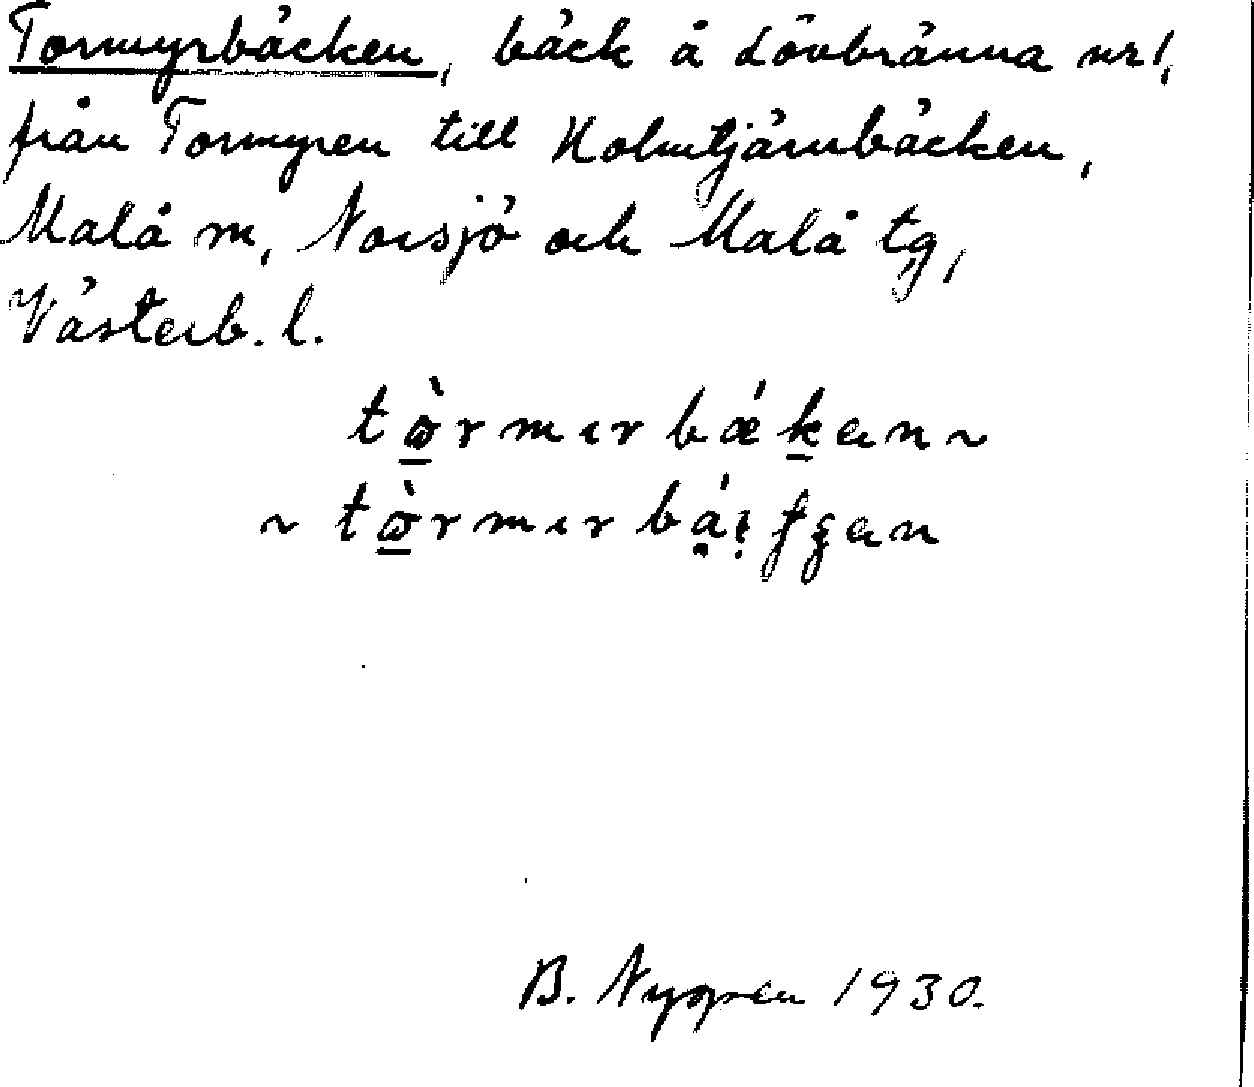 Tormyrbäcken, bäck å Lövbränna nr 1,
från Tormyren till Holmtjärnbäcken,
Malå sn, Norsjö och Malå tg,
Västerb. l.
B. Nygren 1930.